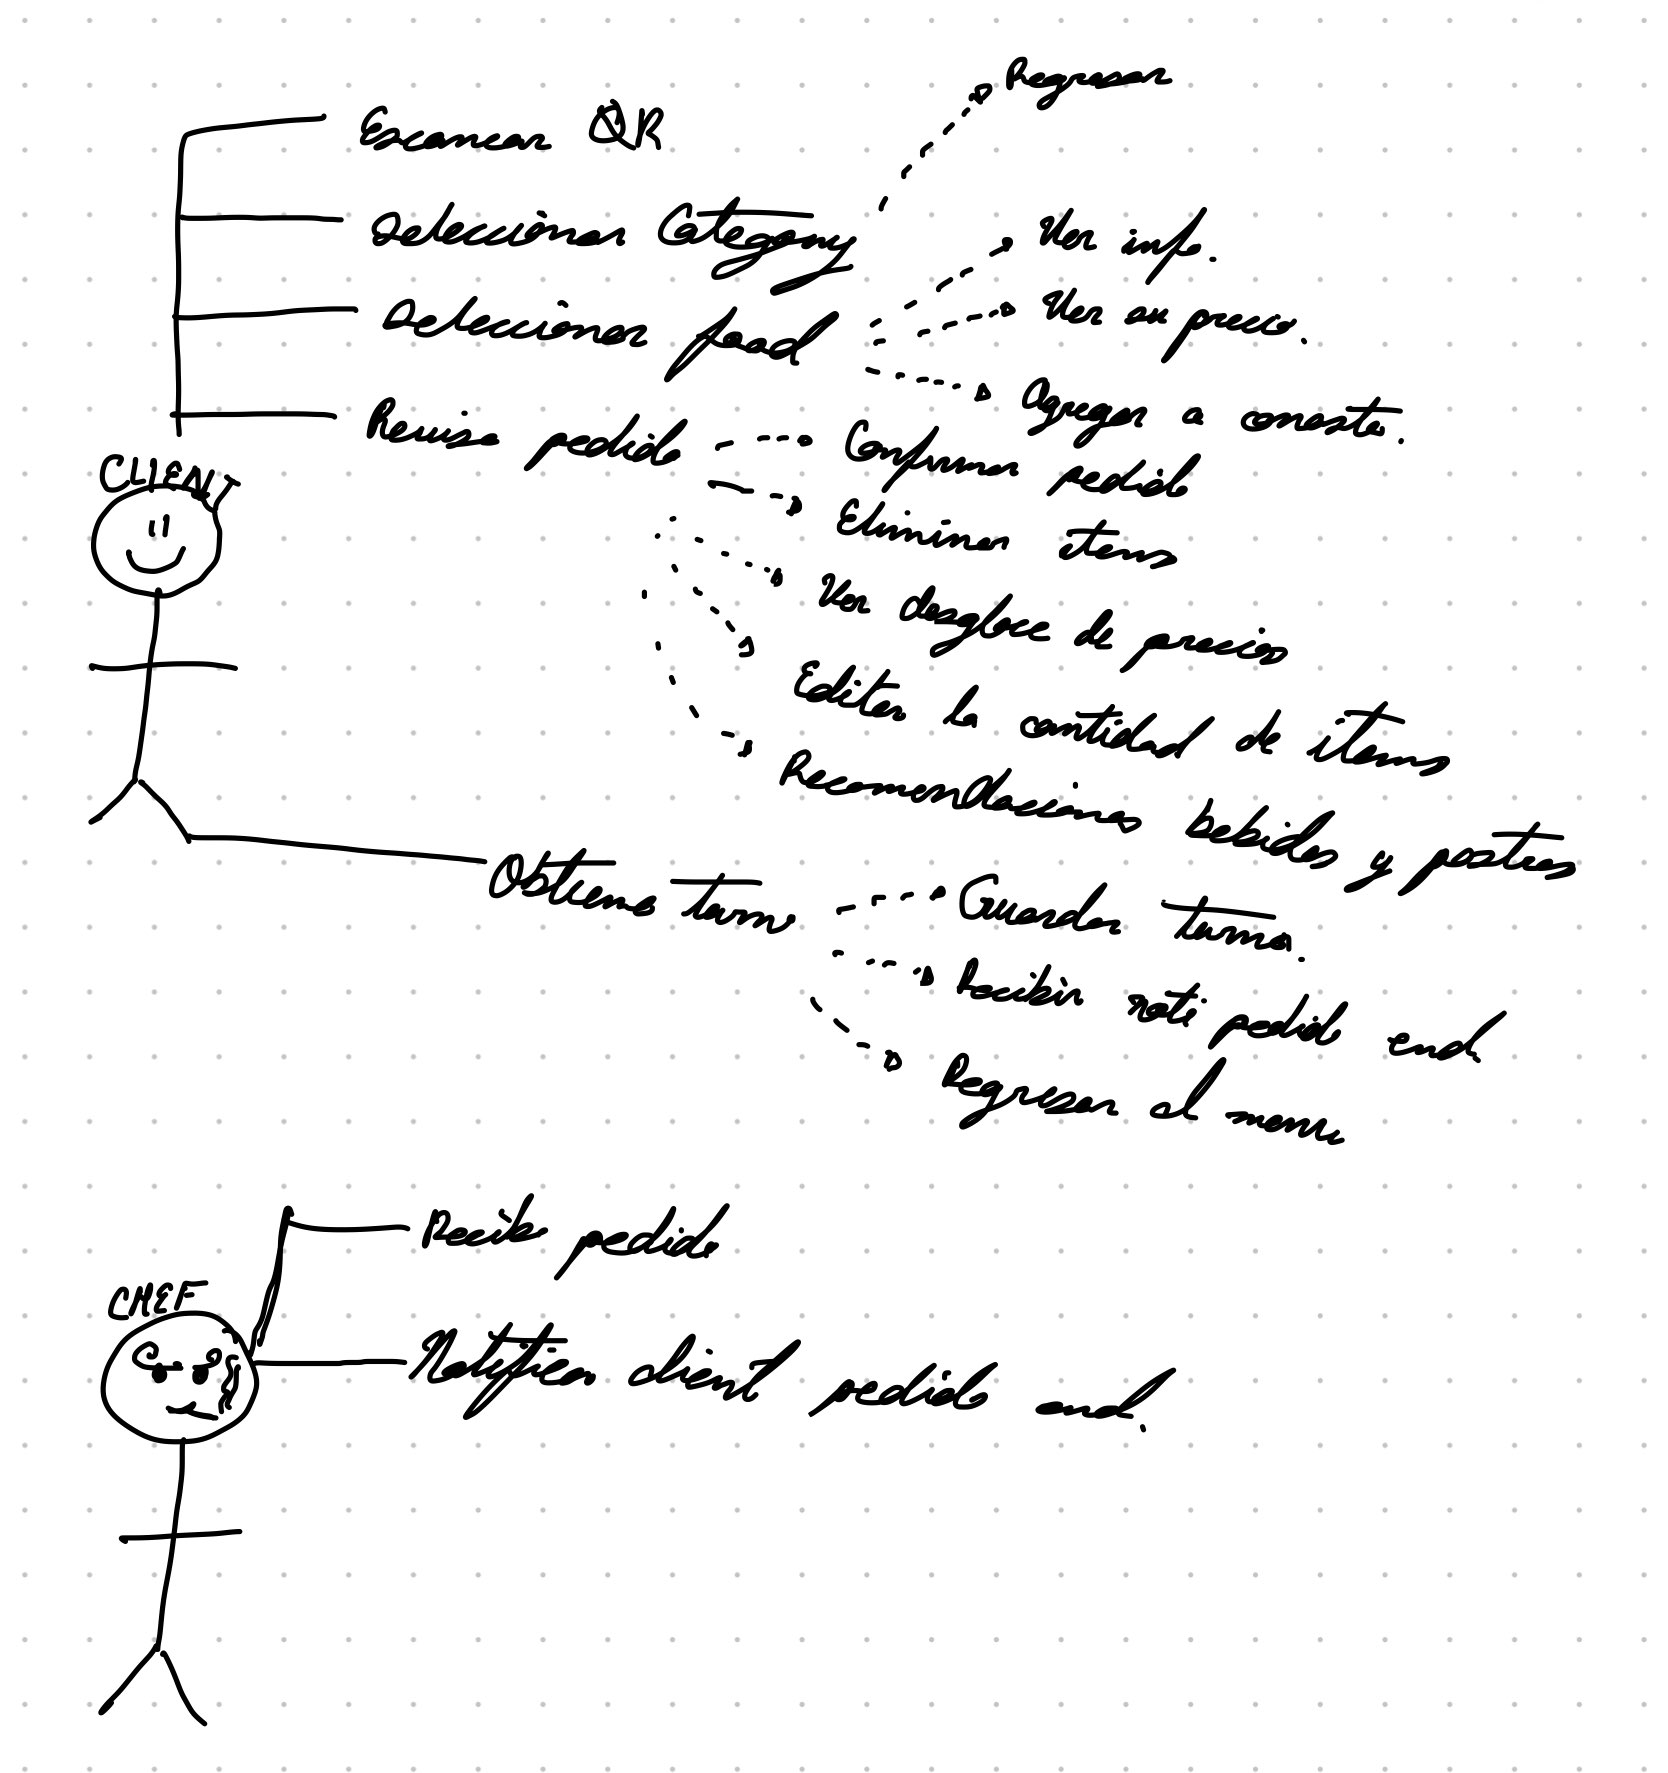 Regresar
Escanear QR
Seleccionar Category
Ver info.
Seleccionar food
Ver su precio.
Agregar a canasta.
Revisa pedido
Confirmar pedido
CLIENT
Eliminar items
Ver desgloce de precios
Editar la cantidad de items
Recomendaciones bebidas y postres
Obtiene turno
Guardar turno.
Recibir noti pedido end
Regresar al menu
Recibe pedido
CHEF
Notificar client pedido end.